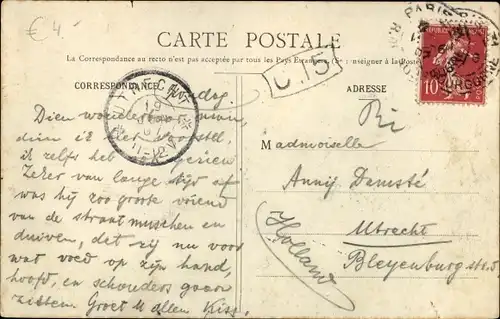 €4.
CARTE POSTALE
La Correspondance au recto n'est pas acceptée par tous les Pays Etrangers. (Se renseigner à la Poste)
C 15
CORRESPONDANCE
ADRESSE
UTRECHT
PARIS
10
dag.
Dien wonder man,
dien ik hier voorstel,
ik zelfs heb gezien
Zeker van lange tijd af
was hij zoo groote vriend
van de straat musschen en
duiven, dat zij nu voor
wat voed op zijn hand,
hoofd, en schouders gaan
zitten. Groet U allen Kiss.
Mademoiselle
Annij Damsté
Utrecht
Bleyenburgstr.
Holland